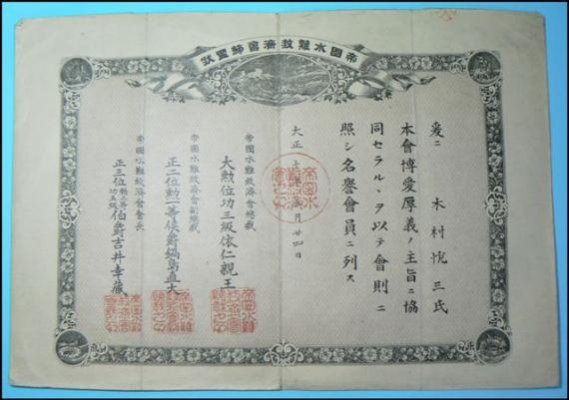 帝國水難救濟會
爰ニ 木村悅三氏
本會博愛厚義ノ主旨ニ協
同セラルヽヲ以テ會則ニ
照シ名譽會員ニ列ス
大正 年 月廿四日
帝國水難救濟會總裁
大勲位功三級依仁親王
帝國水難救濟會副總裁
正二位勲一等侯爵鍋島直大
帝國水難救濟會會長
正三位勲三等功五級伯爵吉井幸藏